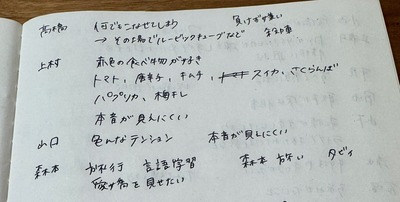 高橋 何でもこなせてしまう 負けず嫌い
→ その場でルービックキューブなど
上村 赤色の食べ物が好き
トマト、唐辛子、キムチ、トマト スイカ、さくらんぼ
パプリカ、梅干し
本音が見えにくい
山口 色んなテンション 本音が見えにくい
森本 旅行 言語学習 森本
を見せたい